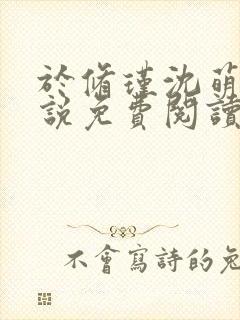 於脩瑾沈萌
說免費閱讀
不會寫詩的兔